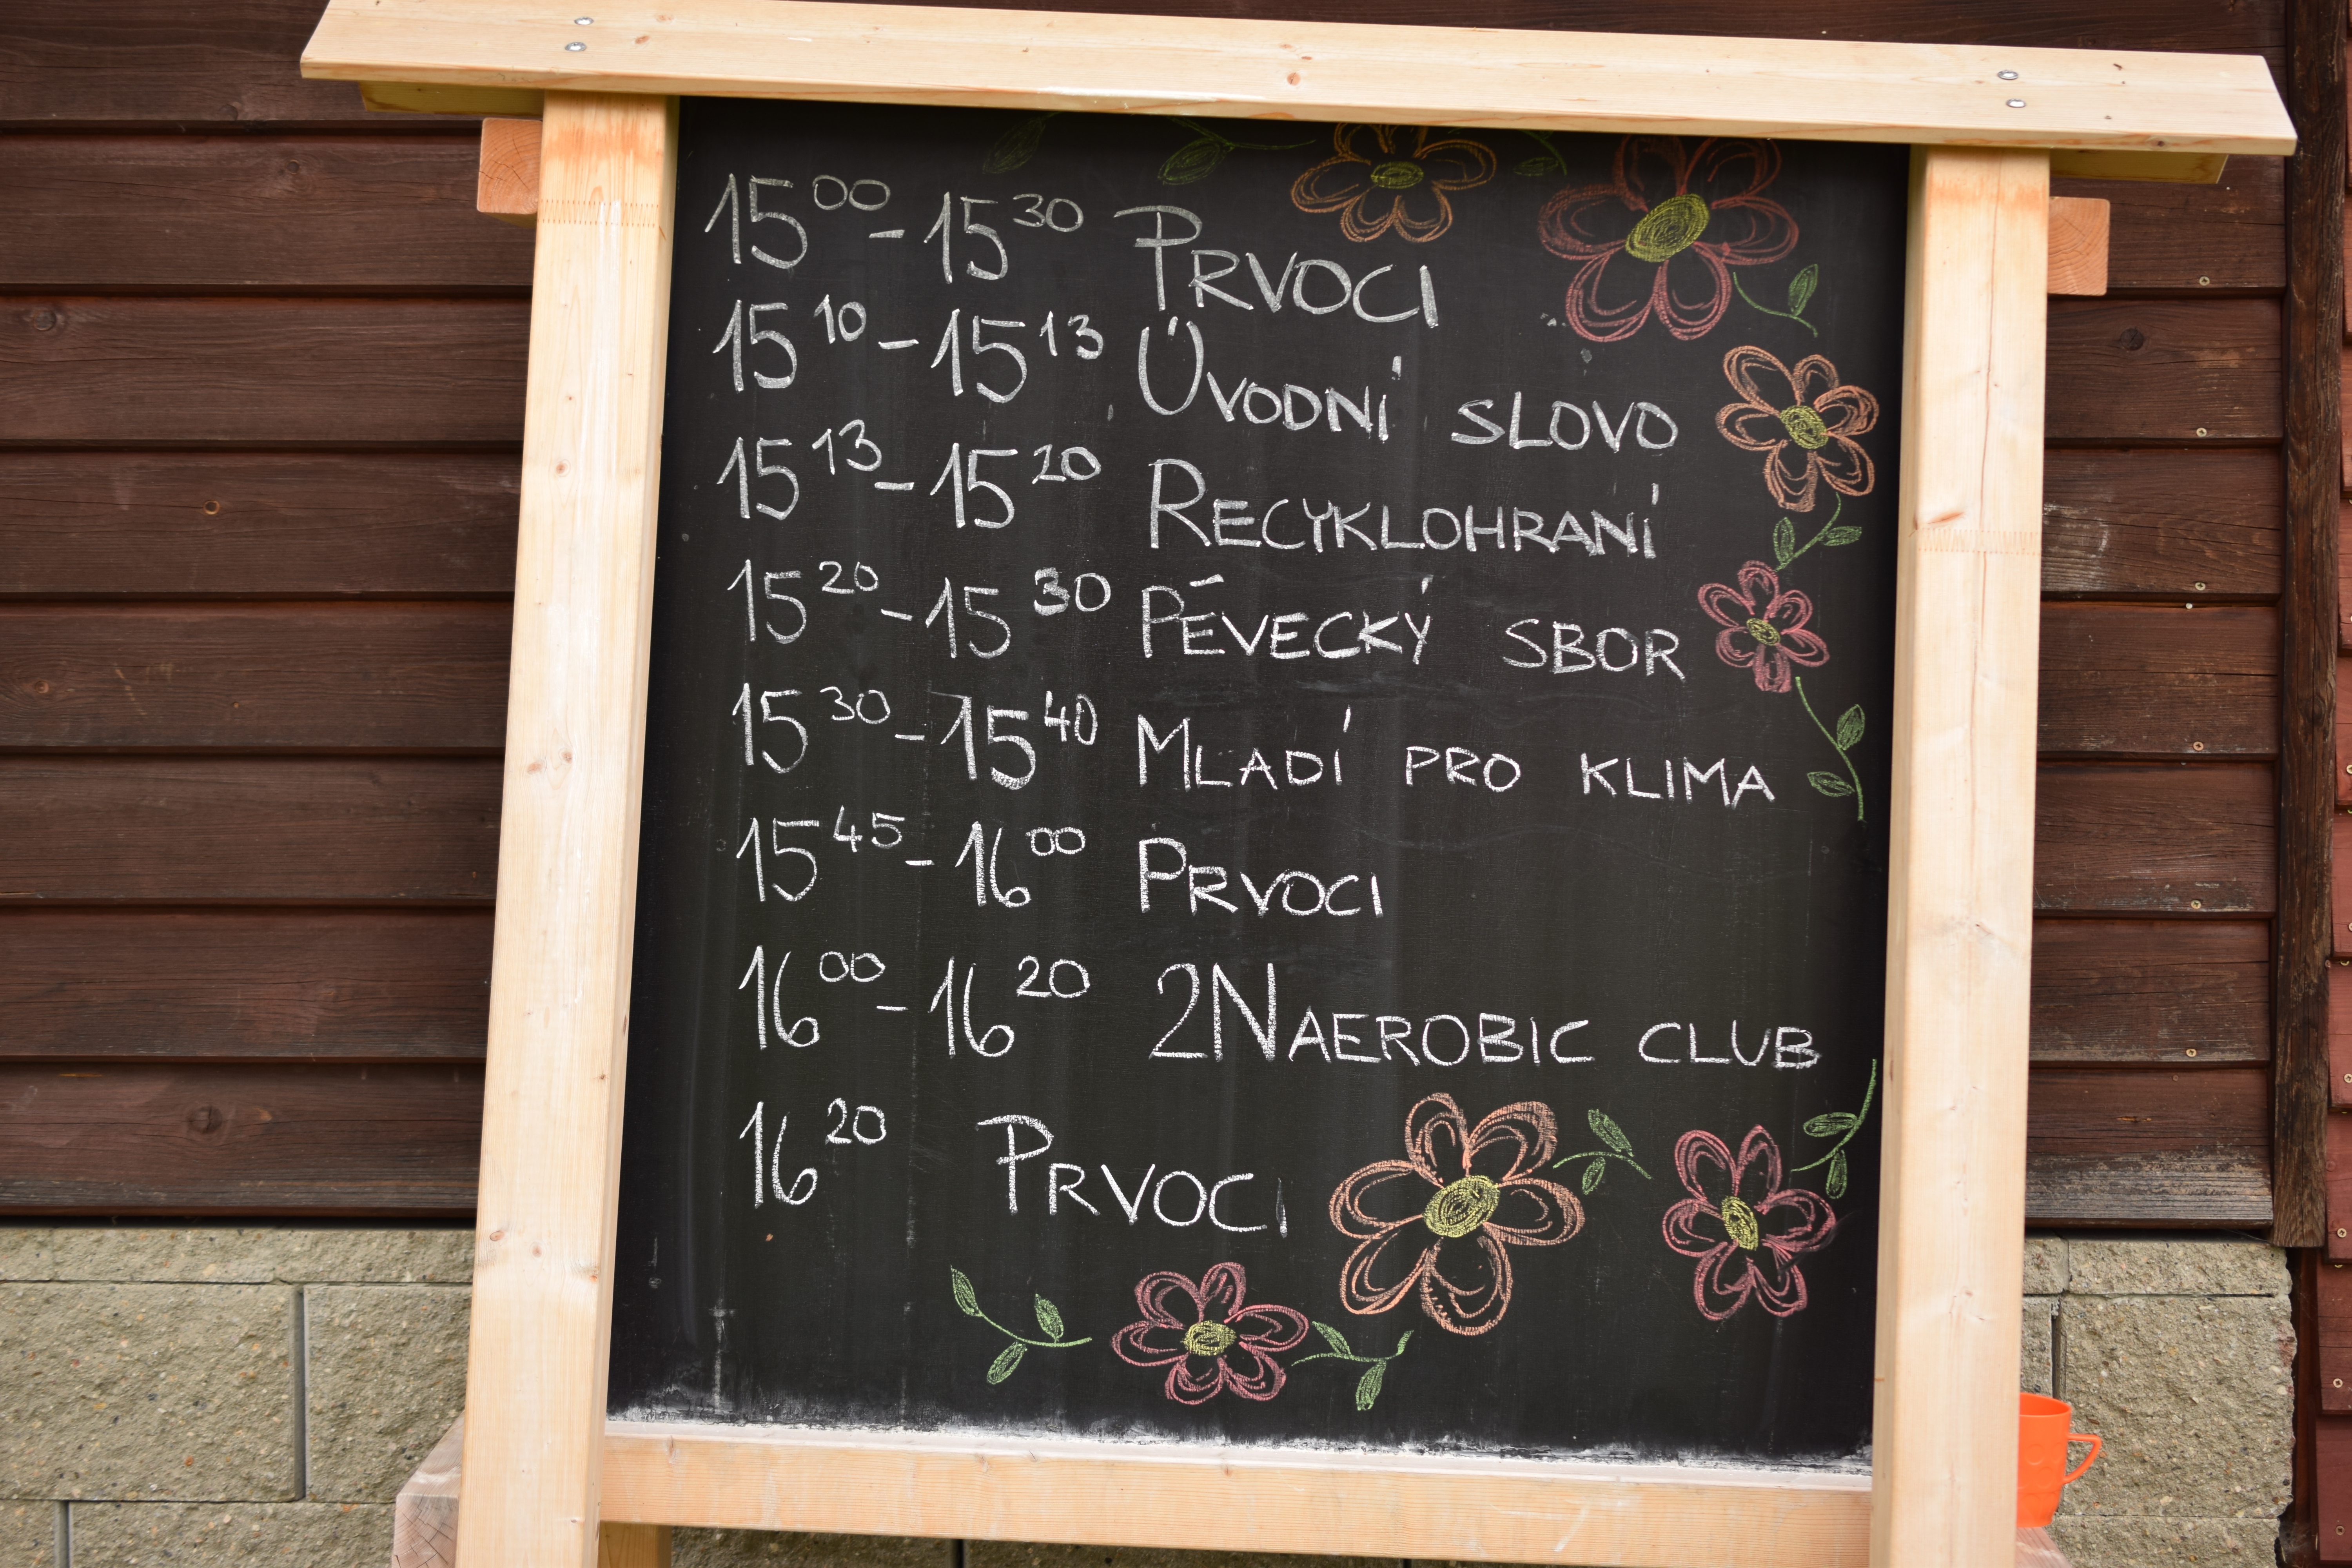 15⁰⁰ - 15³⁰ PRVOCI
15¹⁰ - 15¹³ ÚVODNÍ SLOVO
15¹³ - 15²⁰ RECYKLOHRANÍ
15²⁰ - 15³⁰ PĒVECKÝ SBOR
15³⁰ - 15⁴⁰ MLADÍ PRO KLIMA
15⁴⁵ - 16⁰⁰ PRVOCI
16⁰⁰ - 16²⁰ 2NAEROBIC CLUB
16²⁰ PRVOCI